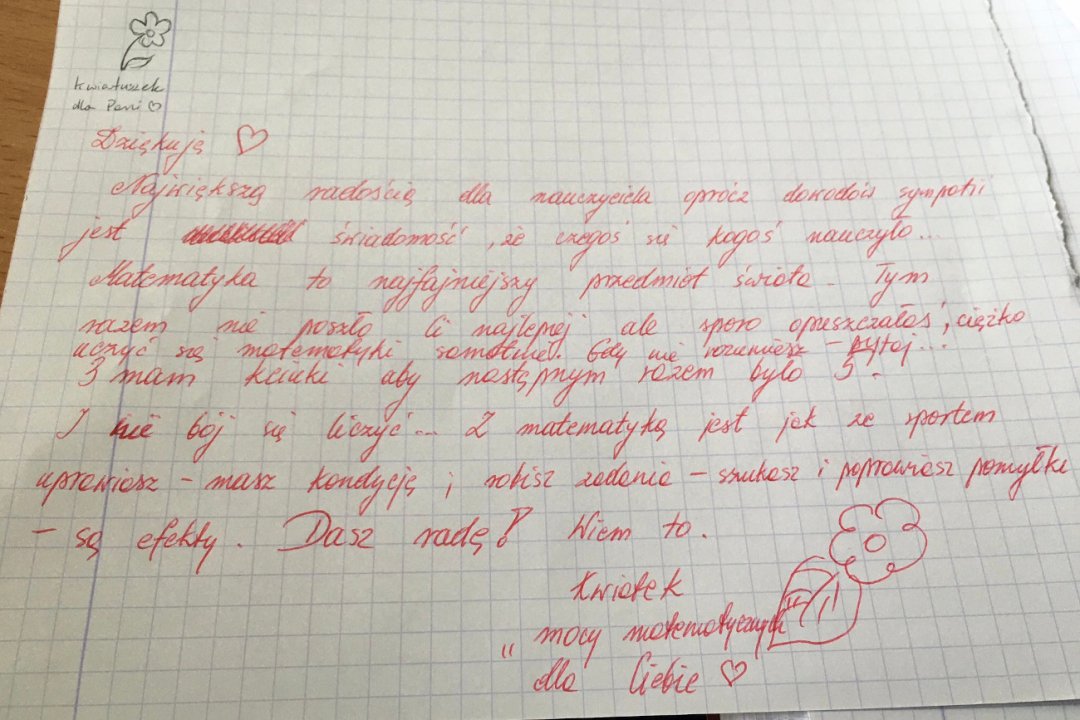 Kwiatuszek
dla Pani ♡
Dziękuję ♡
Największą radością dla nauczyciela oprócz dowodów sympatii
jest świadomość, że czegoś się kogoś nauczyło...
Matematyka to najfajniejszy przedmiot świata. Tym
razem nie poszło Ci najlepiej ale sporo opuszczałaś, ciężko
uczyć się matematyki samotnie. Gdy nie rozumiesz - pytaj...!
3 mam kciuki aby następnym razem było 5.
I nie bój się liczyć... Z matematyką jest jak ze sportem
uprawiasz - masz kondycję, robisz zadania - szukasz i poprawiasz pomyłki
- są efekty. Dasz radę! Wiem to.
Kwiatek
"mocy matematycznych"
dla Ciebie ♡